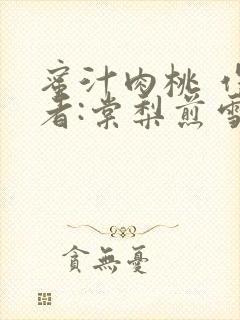 蜜汁肉桃 作
者:棠梨煎雪
貪無憂